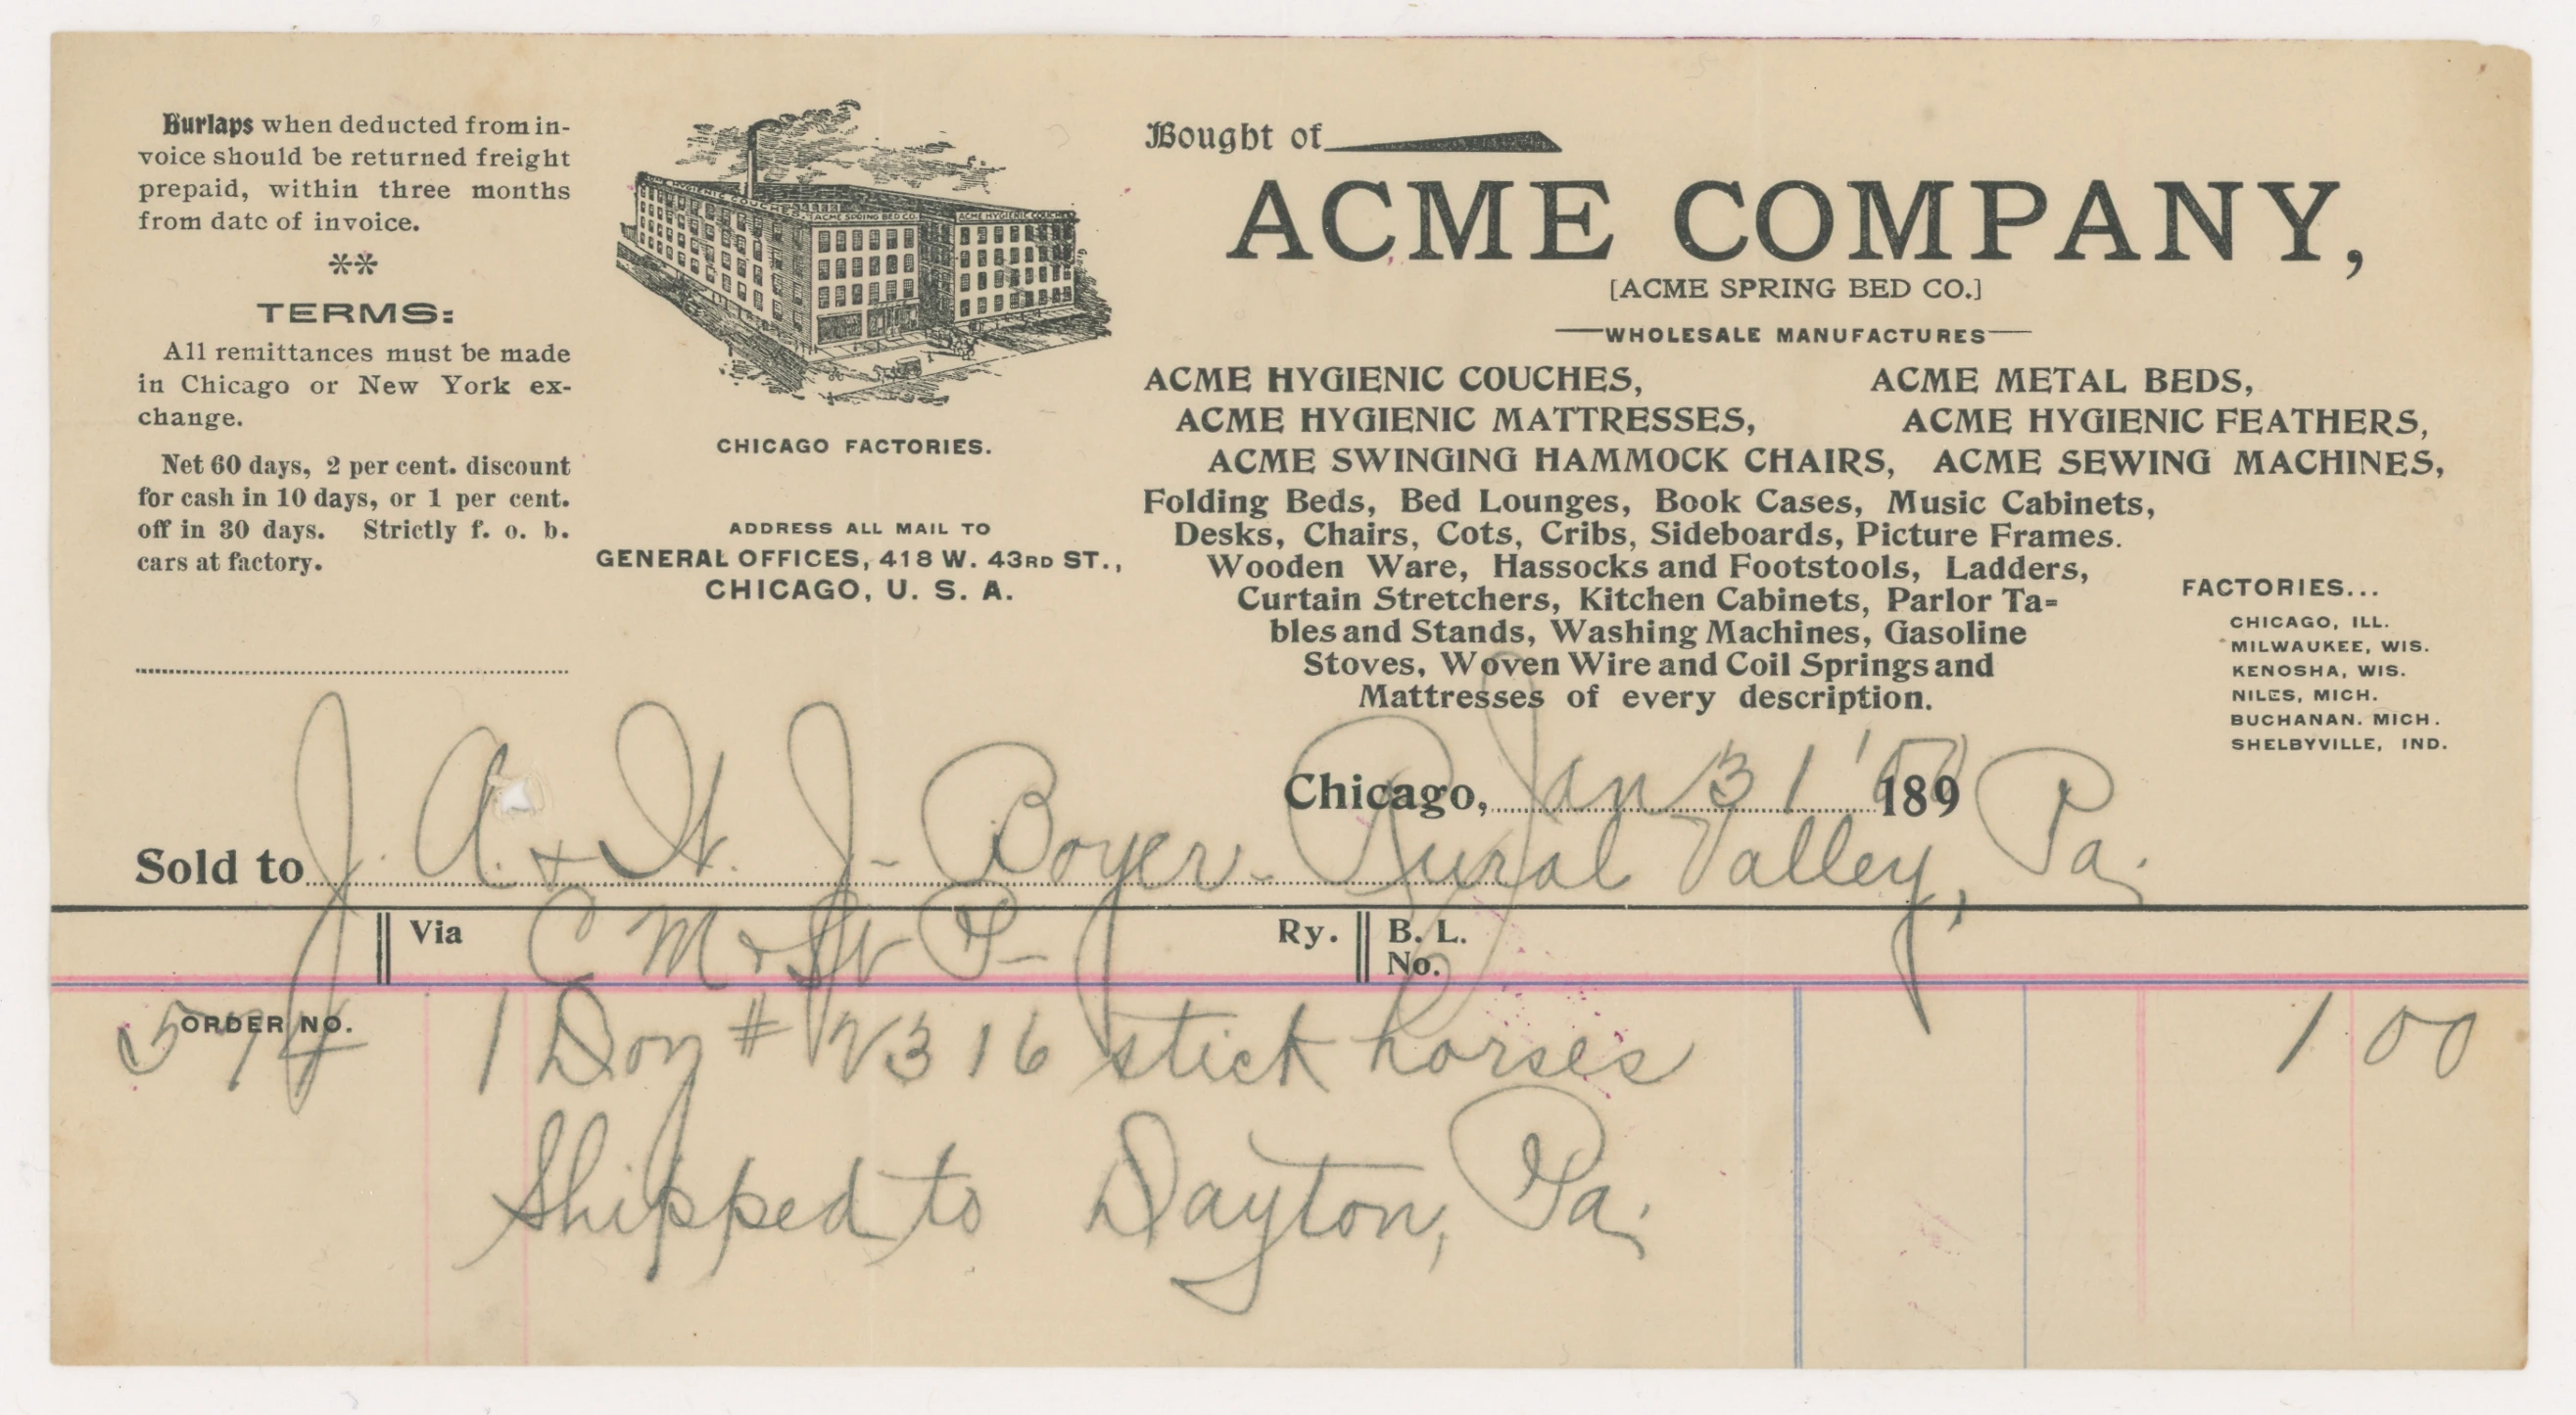 Burlaps when deducted from in-
voice should be returned freight
prepaid, within three months
from date of invoice.
**
TERMS:
All remittances must be made
in Chicago or New York ex-
change.
Net 60 days, 2 per cent. discount
for cash in 10 days, or 1 per cent.
off in 30 days. Strictly f. o. b.
cars at factory.
ACME HYGIENIC COUCHES.
ACME SPRING BED CO.
ACME HYGIENIC COUCHES
CHICAGO FACTORIES.
ADDRESS ALL MAIL TO
GENERAL OFFICES, 418 W. 43RD ST.,
CHICAGO, U. S. A.
Bought of
ACME COMPANY,
[ACME SPRING BED CO.]
WHOLESALE MANUFACTURES
ACME HYGIENIC COUCHES, ACME METAL BEDS,
ACME HYGIENIC MATTRESSES, ACME HYGIENIC FEATHERS,
ACME SWINGING HAMMOCK CHAIRS, ACME SEWING MACHINES,
Folding Beds, Bed Lounges, Book Cases, Music Cabinets,
Desks, Chairs, Cots, Cribs, Sideboards, Picture Frames.
Wooden Ware, Hassocks and Footstools, Ladders,
Curtain Stretchers, Kitchen Cabinets, Parlor Ta-
bles and Stands, Washing Machines, Gasoline
Stoves, Woven Wire and Coil Springs and
Mattresses of every description.
FACTORIES...
CHICAGO, ILL.
MILWAUKEE, WIS.
KENOSHA, WIS.
NILES, MICH.
BUCHANAN. MICH.
SHELBYVILLE, IND.
Chicago, Jan 31 189
Sold to J. A. & H. J. Boyer - Rural Valley, Pa.
Via C M & St P - Ry. B. L. No.
ORDER NO. 574 1 Doz # V316 stick horses 1 00
Shipped to Dayton, Pa.